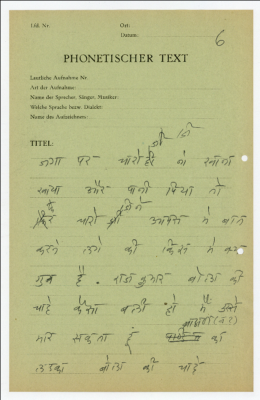 Lfd. Nr.
Ort:
Datum:
6
PHONETISCHER TEXT
Lautliche Aufnahme Nr.
Art der Aufnahme:
Name der Sprecher, Sänger, Musiker:
Welche Sprache bezw. Dialekt:
Name des Aufzeichners:
TITEL:
जगा पर चारो ने खाना
खाया और पानी पिया तो
चारो आपस में बात
करने लगे की किस में क्या
गुन है . राज कुमार बोला की
चाहे कैसा बली हो मैं उसे
मार सकता हूं का
लड़का बोला की चाहे